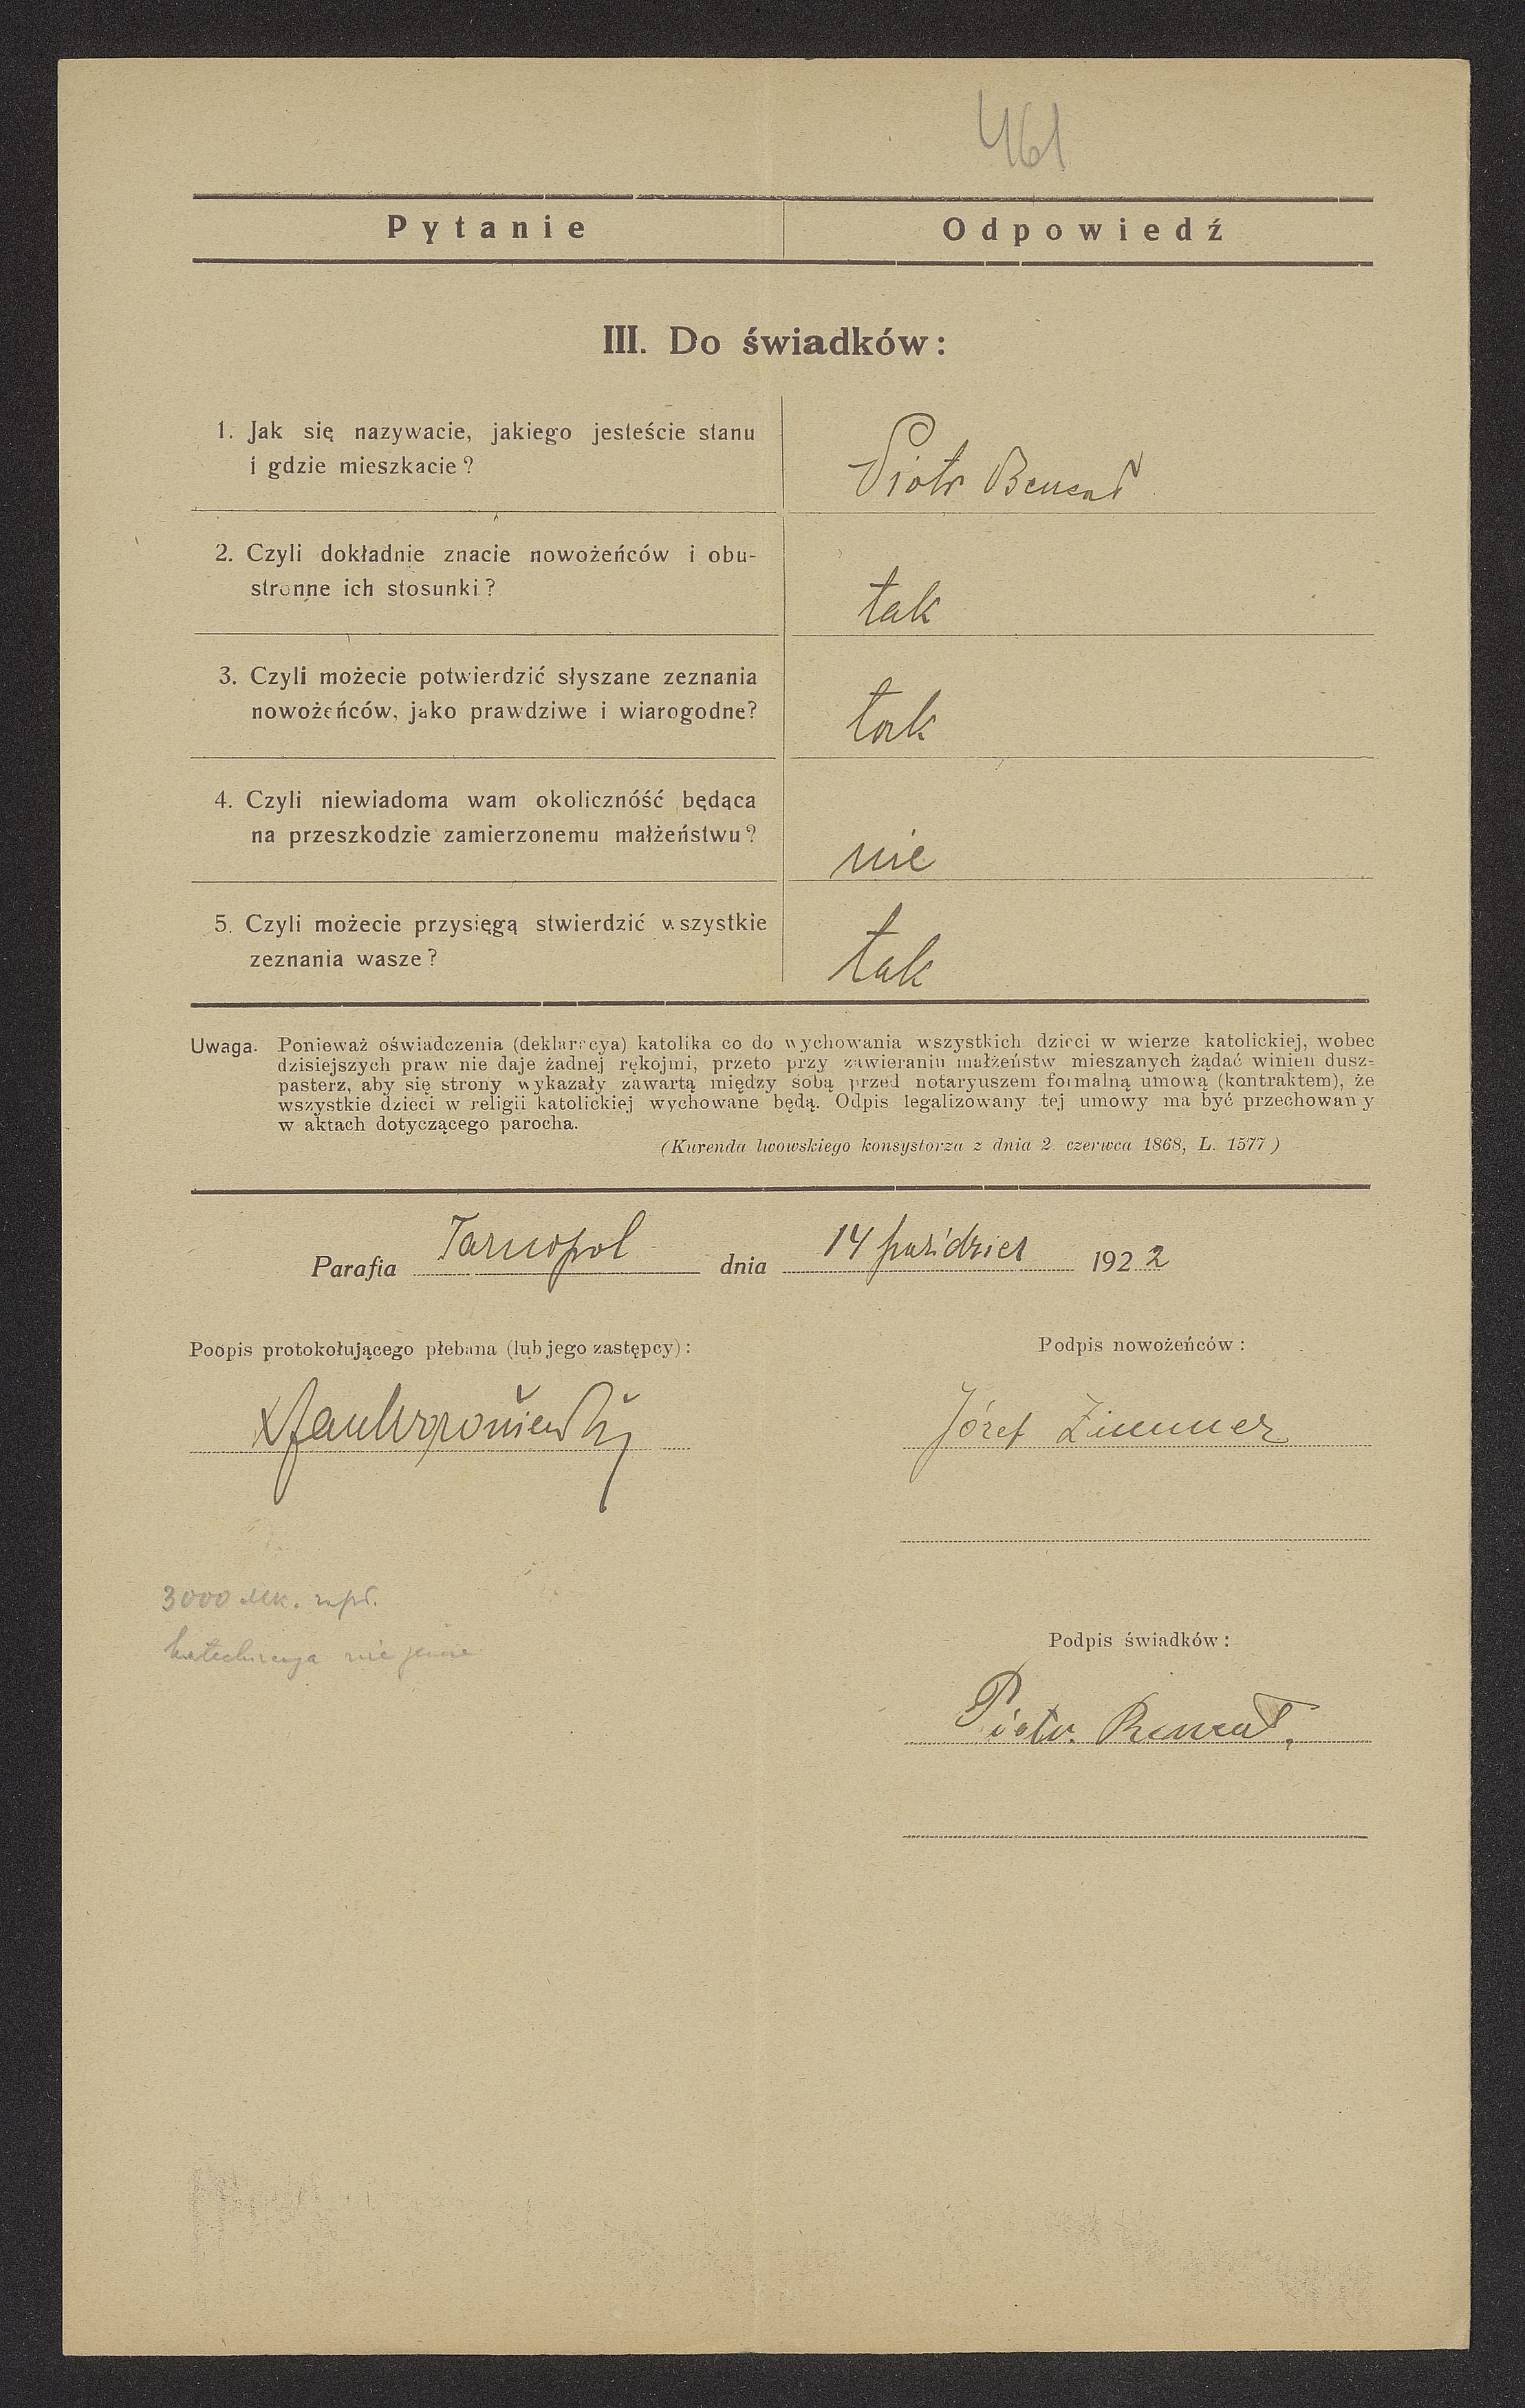 461
Pytanie Odpowiedź
III. Do świadków:
1. Jak się nazywacie, jakiego jesteście stanu
i gdzie mieszkacie?
Piotr
2. Czyli dokładnie znacie nowożeńców i obu-
stronne ich stosunki?
tak
3. Czyli możecie potwierdzić słyszane zeznania
nowożeńców, jako prawdziwe i wiarogodne?
tak
4. Czyli niewiadoma wam okolicznóść będąca
na przeszkodzie zamierzonemu małżeństwu?
nie
5. Czyli możecie przysięgą stwierdzić wszystkie
zeznania wasze?
tak
Uwaga. Ponieważ oświadczenia (deklaracya) katolika co do wychowania wszystkich dzieci w wierze katolickiej, wobec
dzisiejszych praw nie daje żadnej rękojmi, przeto przy zawieraniu małżeństw mieszanych żądać winien dusz-
pasterz, aby się strony wykazały zawartą między sobą przed notaryuszem formalną umową (kontraktem), że
wszystkie dzieci w religii katolickiej wychowane będą. Odpis legalizowany tej umowy ma być przechowany
w aktach dotyczącego parocha.
(Kurenda lwowskiego konsystorza z dnia 2. czerwca 1868, L. 1577)
Parafia Tarnopol dnia 14 paździer 1922
Poopis protokołującego plebana (lub jego zastępcy): Podpis nowożeńców:
Józef Zimmer
3000 Mk. zapł.
nie
Podpis świadków:
Piotr